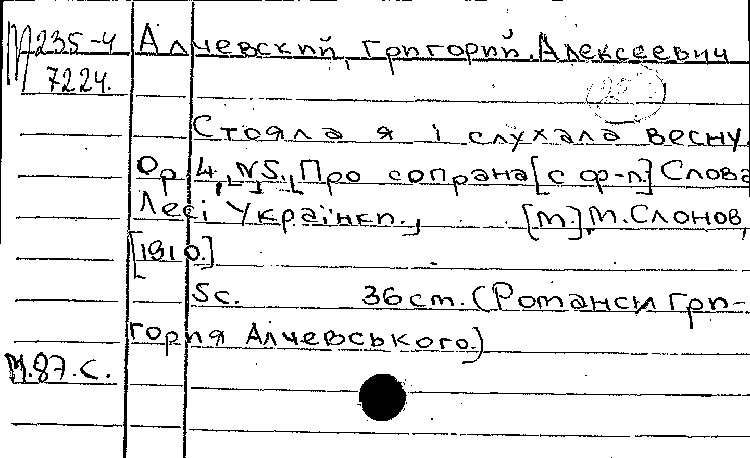 М 235-4 Алчевский, Григорий Алексеевич
7224.
Стояла я і слухала весну.
Ор. 4, N5. Про сопрана [с ф-п.] Слова
Лесі Українки., [М.], М. Слонов,
[1910.]
5с. 36 ст. (Романси Гри-
гория Алчевського.)
М.87.С.